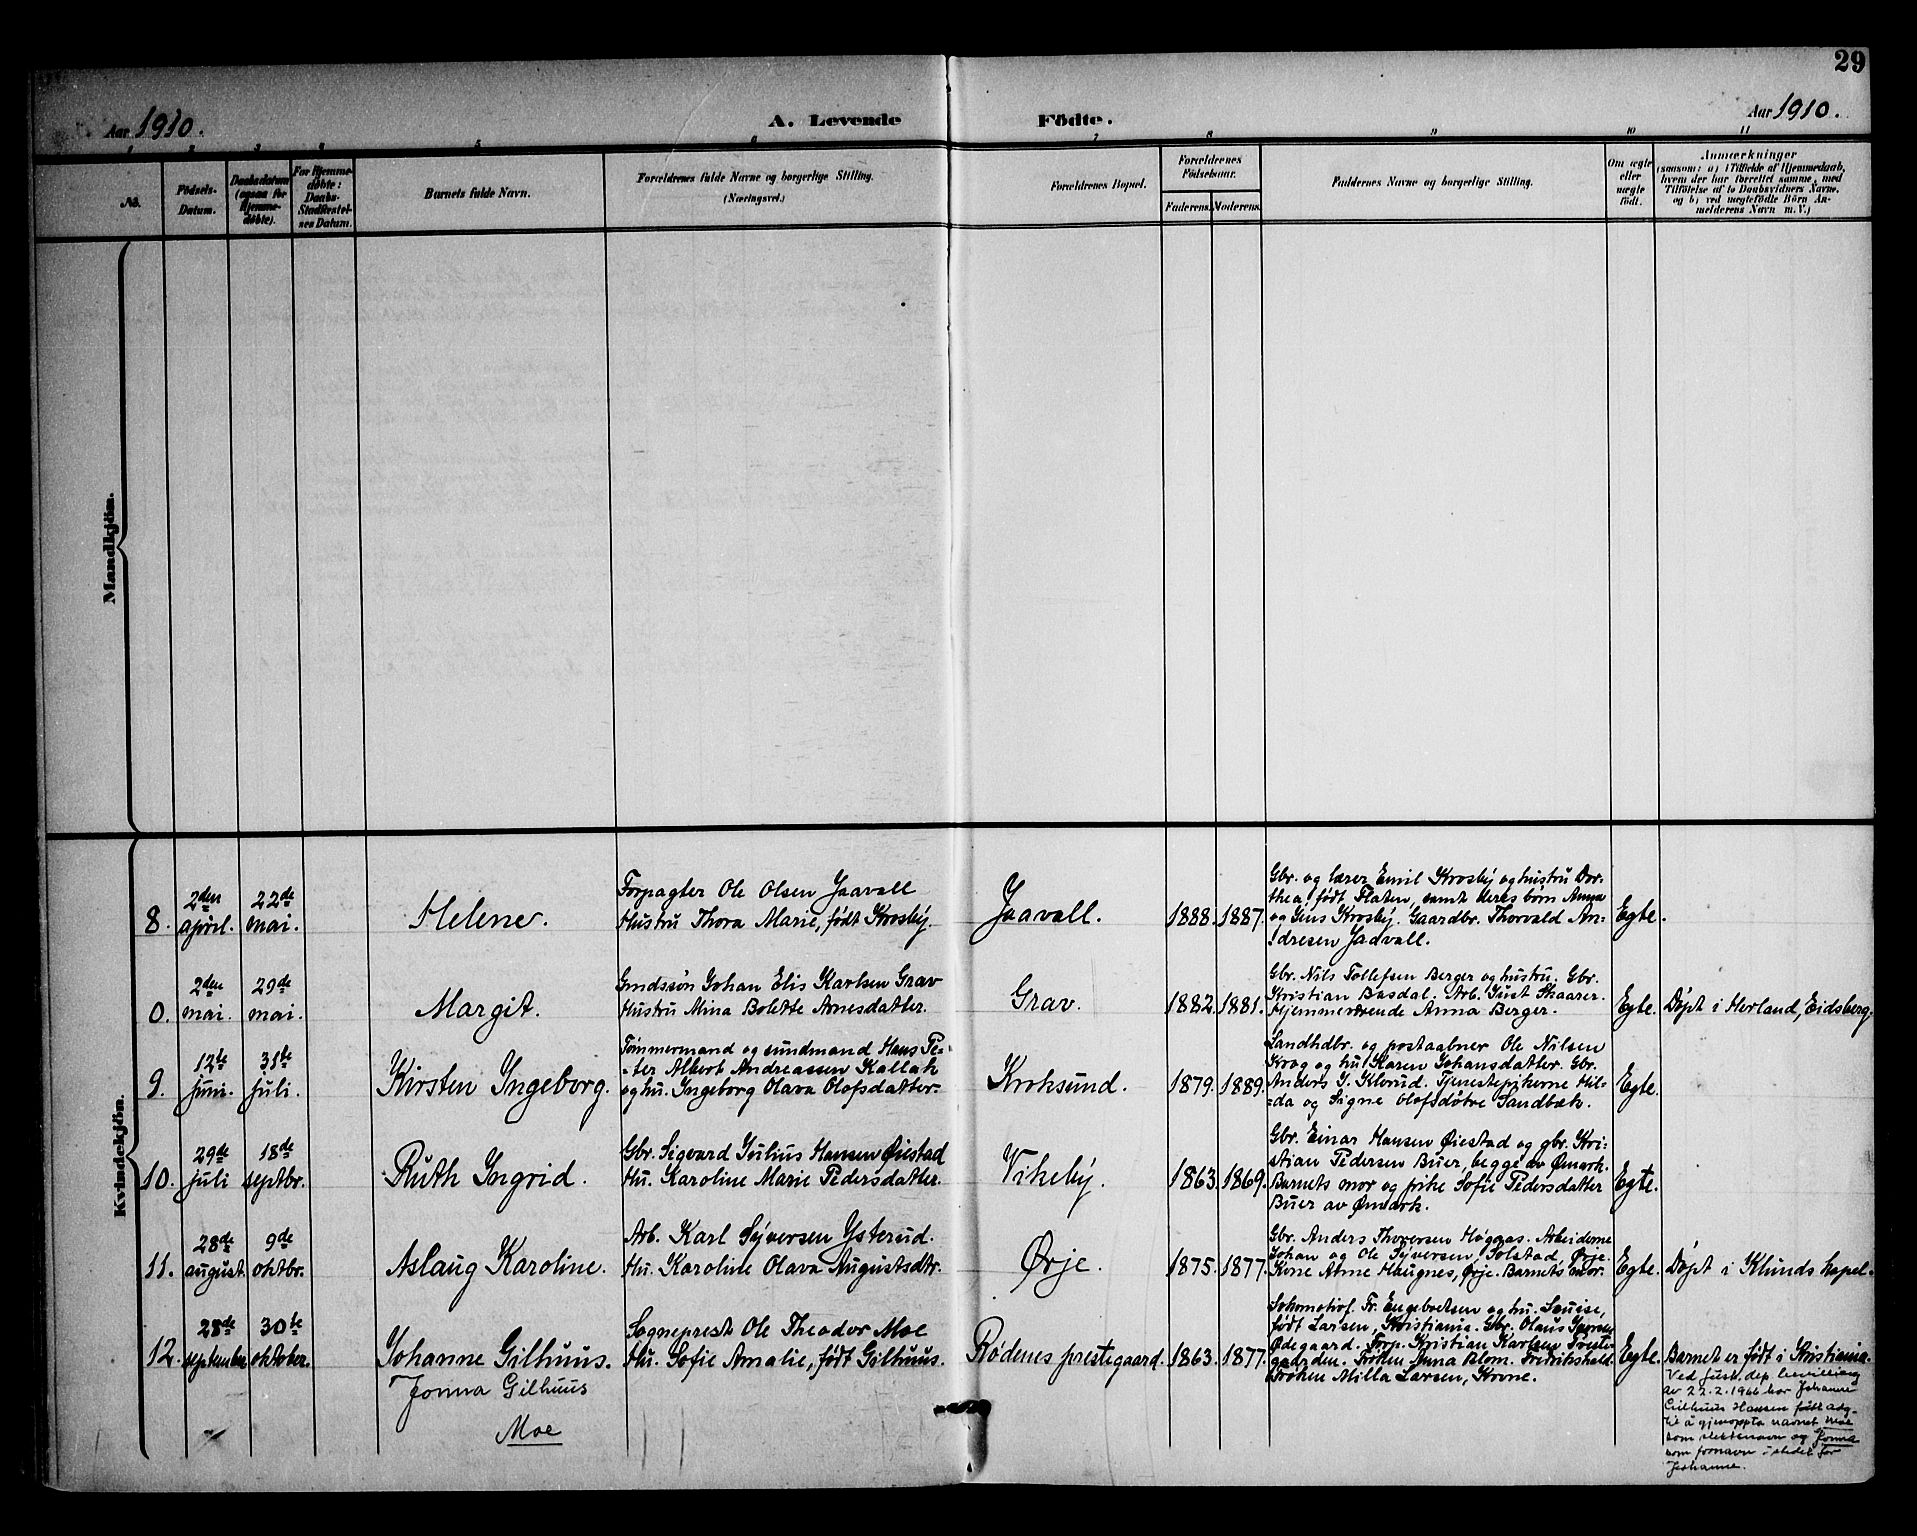 29
Aar 1910.
A. Levende Födte.
Aar 1910.
1 2 3 4 5 6 7 8 9 10 11
No.
Födsels-Datum.
Daabsdatum (ogsaa for Hjemme-döbte).
For Hjemme-döbte: Daabs-Stadfæstel-ses Datum.
Barnets fulde Navn.
Forældrenes fulde Navne og borgerlige Stilling.
(Næringsvei.)
Forældrenes Bopæl.
Forældrenes Födselsaar.
Faderens. Moderens.
Faddernes Navne og borgerlige Stilling.
Om ægte eller uægte födt.
Anmærkninger
(saasom: a) i Tilfælde af Hjemmedaab,
hvem der har forrettet samme, med
Tilföielse af to Daabsvidners Navne,
og b) ved uægtefödte Börn An-
melderens Navn m. V.)
Mandkjön.
Kvindekjön.
8.
2den april.
22de mai.
Helene.
Forpagter Ole Olsen Jaavall
Hustru Thora Marie, født Krosby.
Jaavall.
1888. 1887.
Gbr. og lærer Emil Krosby og hustru Dor-
thea, født Flaten, samt deres børn Anna
og Jens Krosby. Gaardbr. Thorvald An-
dresen Jaavall.
Egte.
0.
2den mai.
29de mai.
Margit.
Gmdssøn Johan Elis Karlsen Grav
Hustru Mina Bolette Arnesdatter.
Grav.
1882. 1881.
Gbr. Nils Tollefsen Berger og hustru. Gbr.
Kristian Basdal. Arb. Just Skaarer.
Hjemmeværende Anna Berger.
Egte.
Døpt i Herland, Eidsberg.
9.
12te juni.
31te juli.
Kirsten Ingeborg.
Tømmermand og sundmand Hans Pe-
ter Albert Andreassen Kallak
og hu. Ingeborg Olava Olofsdatter.
Kroksund.
1879. 1889.
Landhdbr. og postaabner Ole Nilsen
Krog og hu. Karen Johansdatter. Gbr.
Anders J. Klerud. Tjenestepikerne Hil-
da og Signe Olofsdøtre Sandbæk.
Egte.
10.
29de juli
18de septbr.
Ruth Ingrid.
Gbr. Sigvard Julius Hansen Øiestad
Hu. Karoline Marie Pedersdatter.
Vikeby.
1863. 1869.
Gbr. Einar Hansen Øiestad og gbr. Kri-
stian Pedersen Buer, begge av Ømark.
Barnets mor og pike Sofie Pedersdatter
Buer av Ømark.
Egte.
11.
28de august.
9de oktbr.
Aslaug Karoline.
Arb. Karl Syversen Ysterud.
Hu. Karoline Olava Augustsdtr.
Ørje.
1875. 1877.
Gbr. Anders Thoresen Høgaas. Arbeiderne
Johan og Ole Syversen, Solstad, Ørje.
Kone Agne Haugnes, Ørje. Barnets mor.
Egte.
Døpt i Klunds kapel.
12.
28de september
30te oktober.
Johanne Gilhuus.
Jonna Gilhuus
Moe
Sogneprest Ole Theodor Moe
Hu. Sofie Amalie, født Gilhuus.
Rødenes prestegaard.
1863. 1877.
Lokomotivf. Fr. Engebretsen og hu. Louise,
født Larsen, Kristiania. Gbr. Olaus
Ødegaard. Forp. Kristian Karlsen
Frøken Anna Blom, Fredrikshald
Frøken Milla Larsen, Krone.
Egte.
Barnet er født i Kristiania.
Ved Just. dep. bevilling
av 22.2.1966 har Johanne
Gilhuus Hansen fått adg.
til å gjenoppta navnet Moe
som slektsnavn og Jonna
som fornavn i stedet for
Johanne.